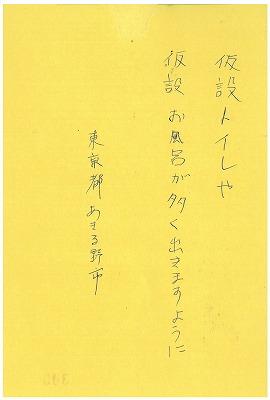 仮設トイレや
仮設お風呂が多く出きますように
東京都あきる野市